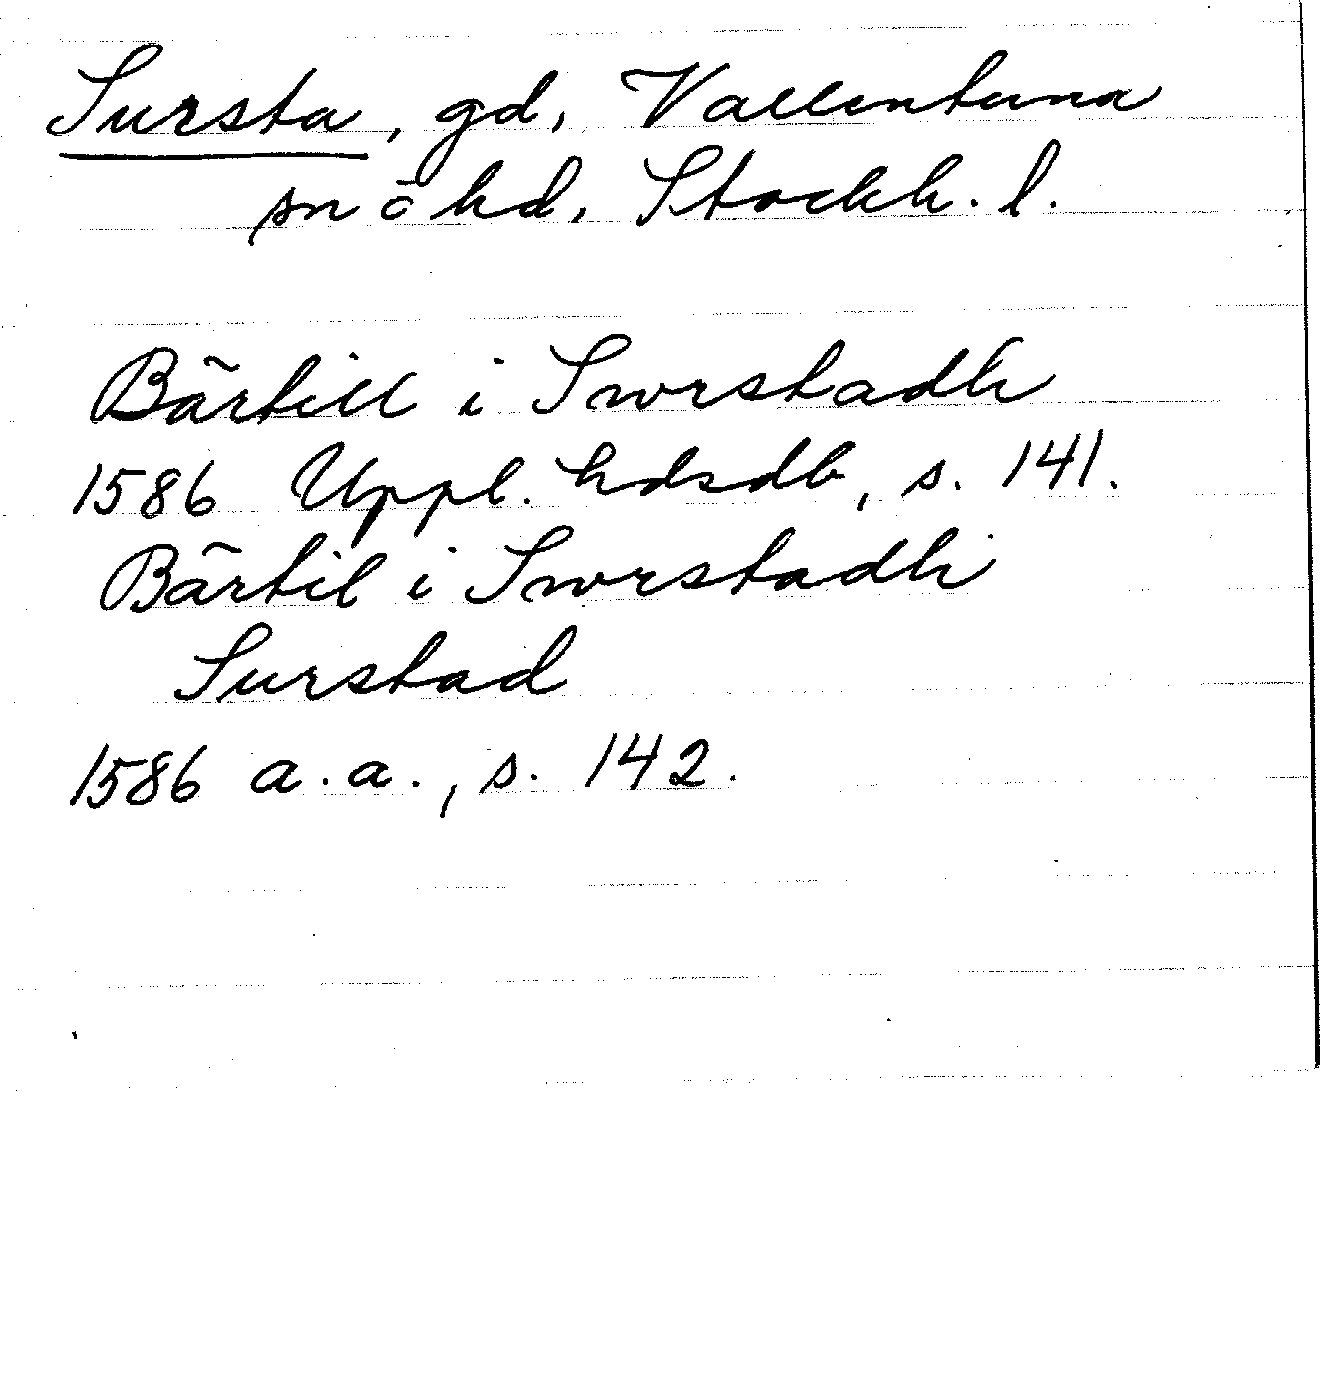 Sursta, gd, Vallentuna
sn ō hd, Stockh. l.
Bärtill i Swrstadh
1586 Uppl. hdsdb, s. 141.
Bärtil i Swrstadh
Surstad
1586 a.a., s. 142.